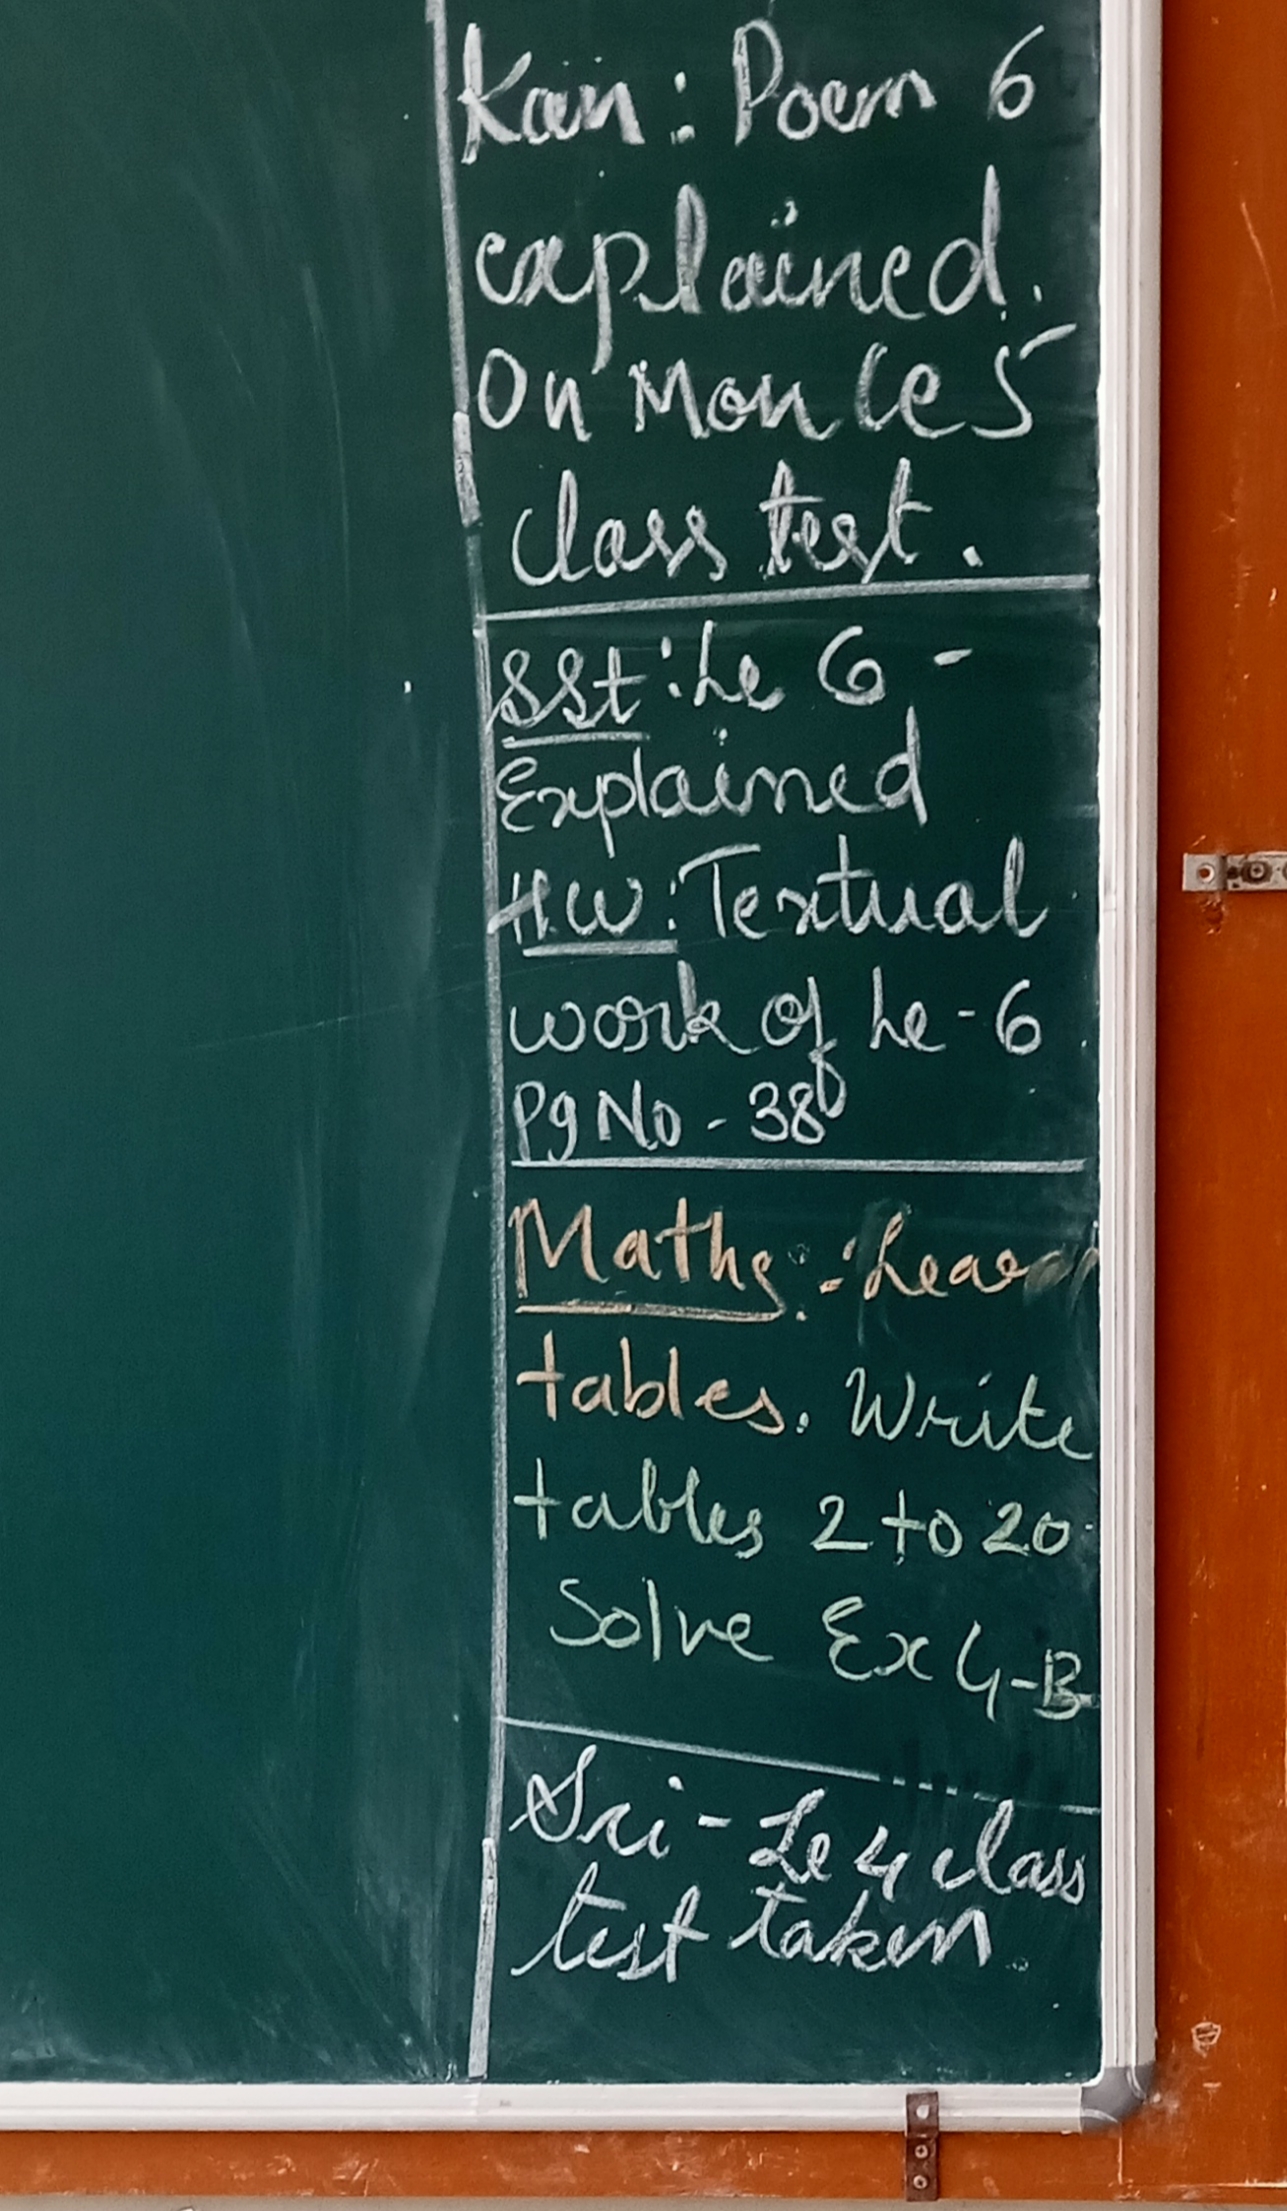 Kan: Poem 6
explained.
On Mon Le 5
class test.
SSt: Le 6 -
Explained
H.W: Textual
work of Le-6
Pg No - 38
Maths:- Learn
tables. Write
tables 2 to 20
Solve Ex 4-B
Sci - Le 4 class
test taken.